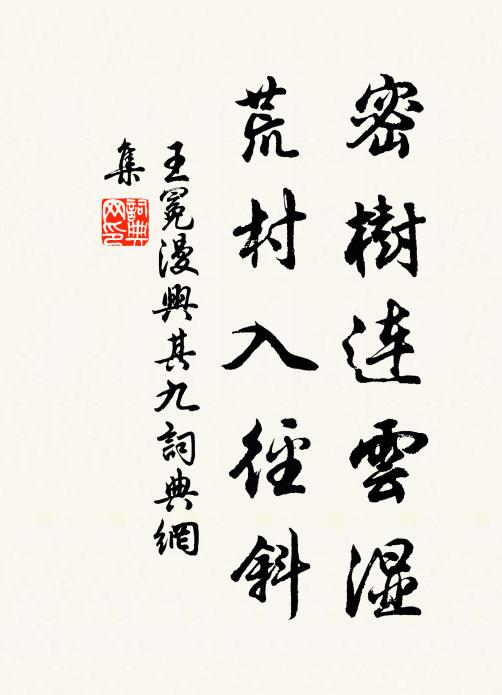 密樹連雲湿
荒村入徑斜
王冕漫興其九詞典網
集
詞典网印